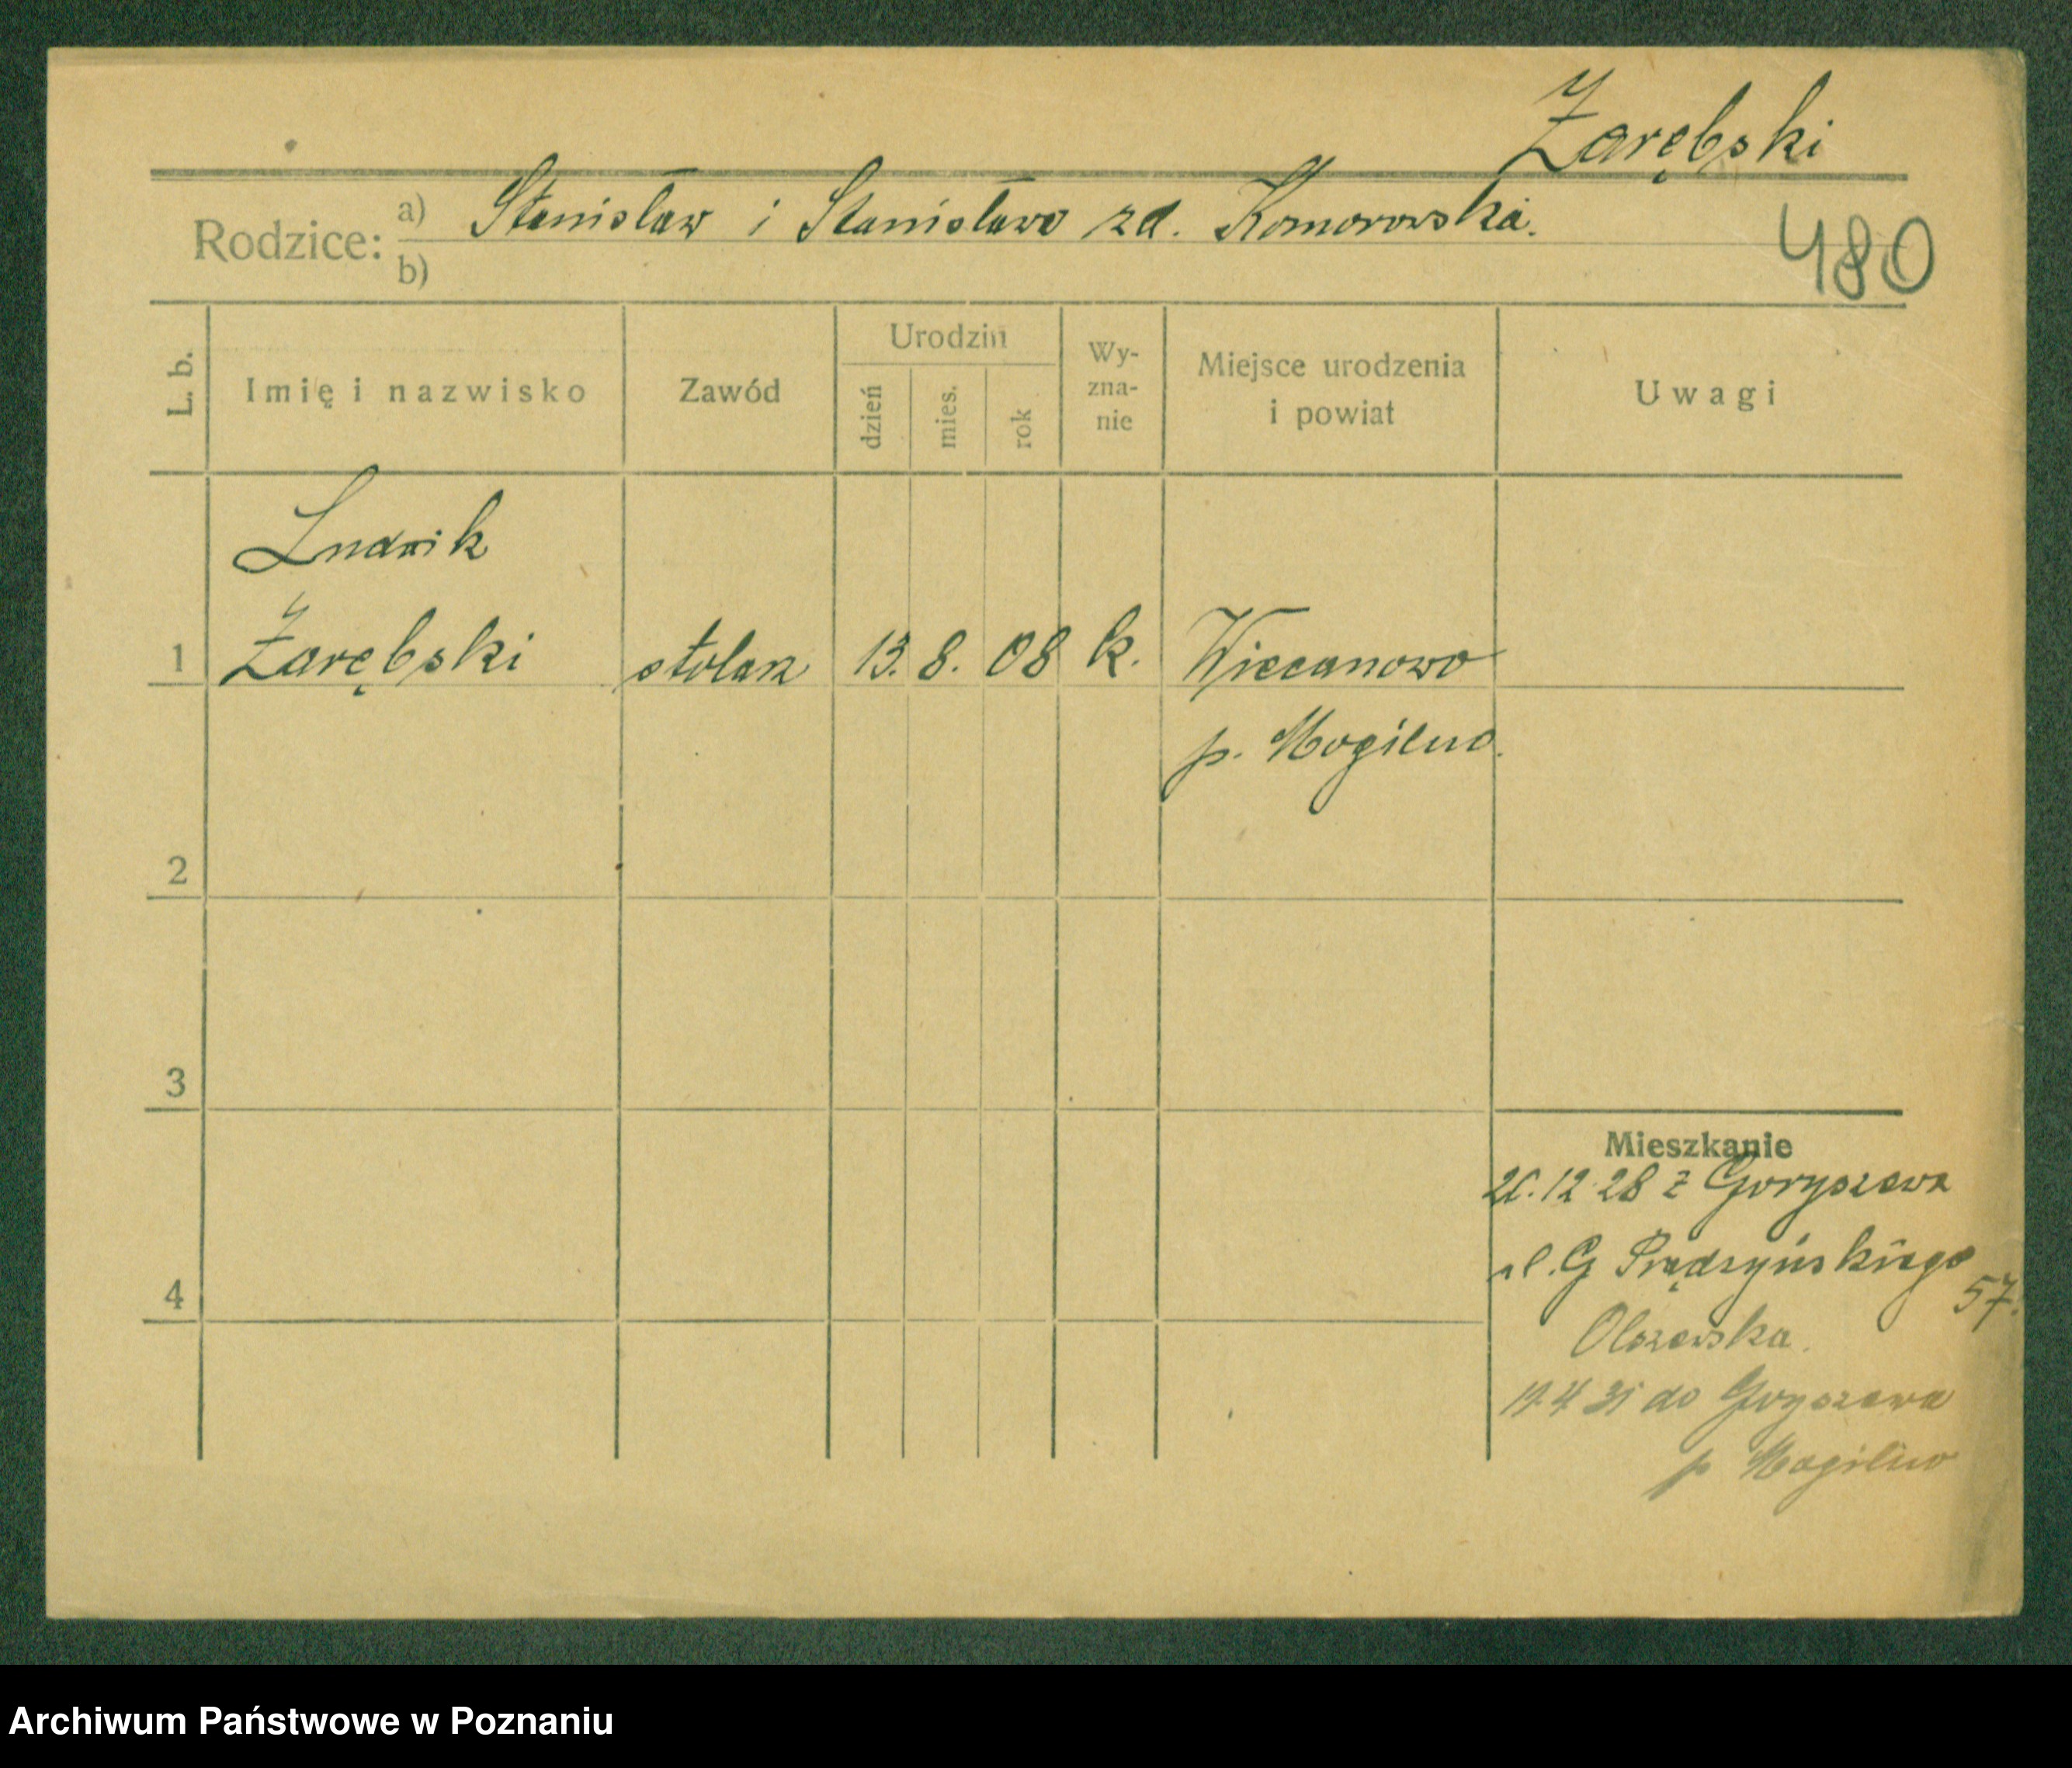 Zarębski
Rodzice: a) Stanisław i Stanisława zd. Komorowska.
b)
480
L. b. Imię i nazwisko Zawód Urodzin dzień mies. rok Wy-zna-nie Miejsce urodzenia i powiat Uwagi
Ludwik
1 Zarębski stolarz 13. 8. 08 k. Wiecanowo
p. Mogilno.
2
3
Mieszkanie
12 28 z Goryszewa
4 ul. G Prądzyńskiego
57.
Olszewska.
4 31 do Goryszewa
p Mogilno
Archiwum Państwowe w Poznaniu